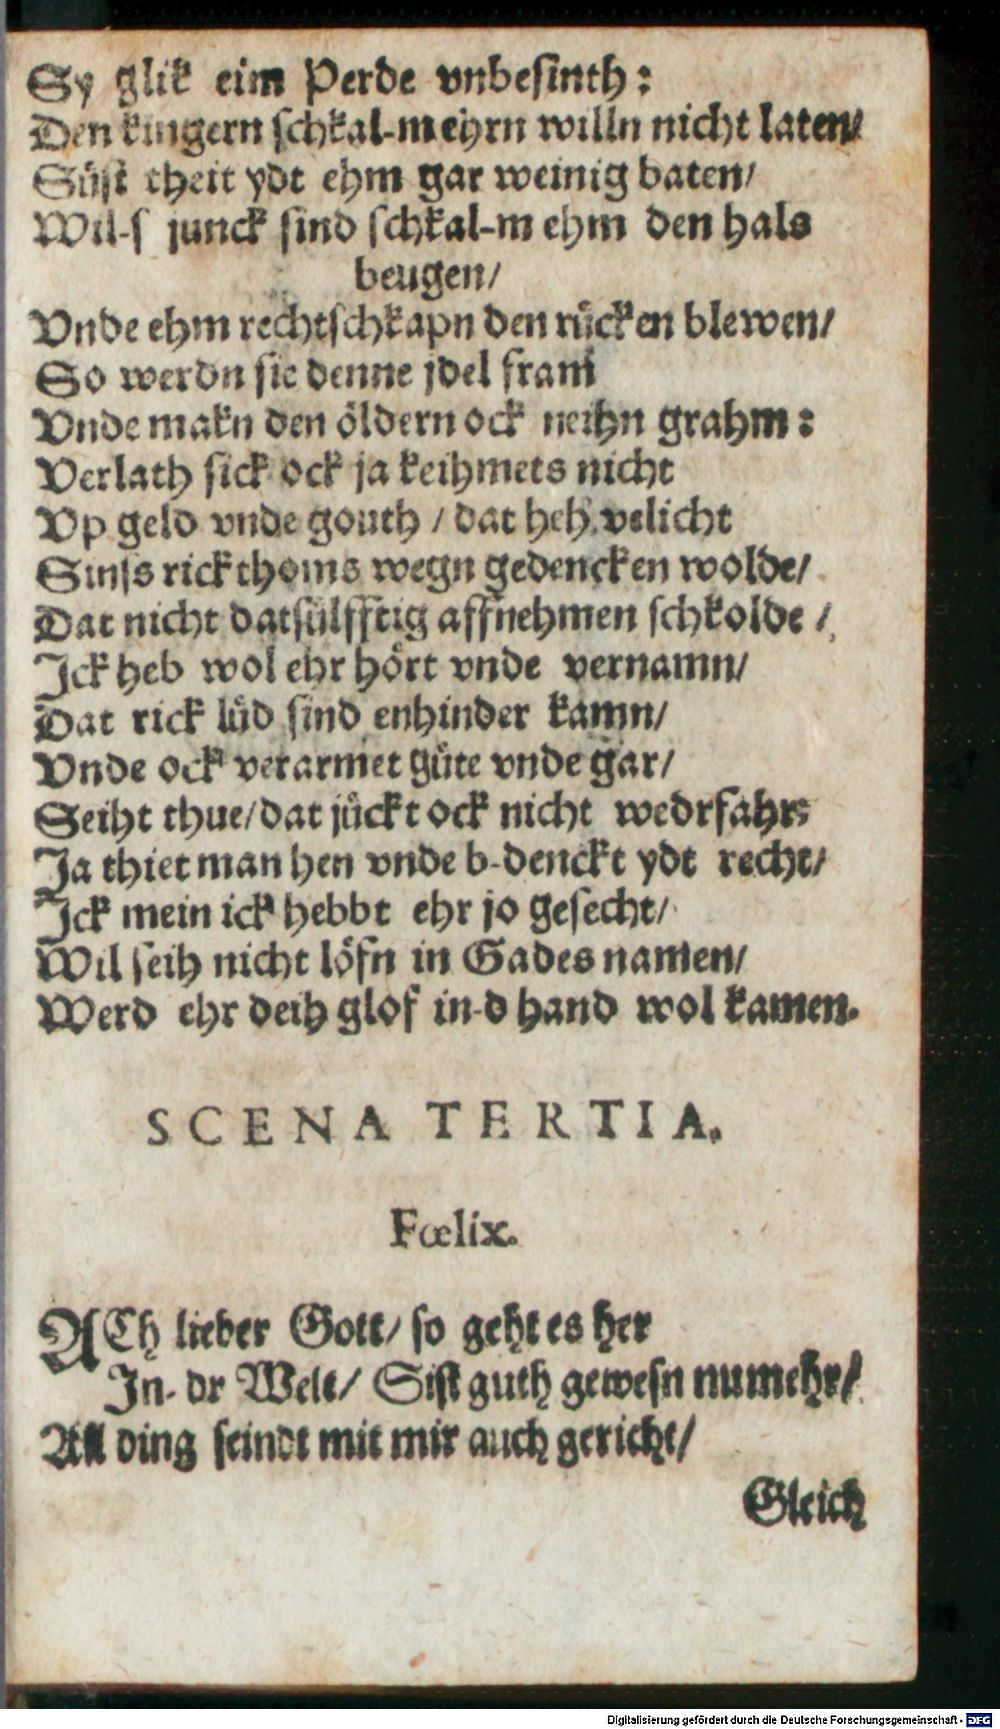 Sy glik eim Perde vnbesinth:
Den kingern schkal-m eyrn willn nicht laten/
Süst theit ydt ehm gar weinig baten/
Wil-s junck sind schkal-m ehm den hals
beugen/
Vnde ehm rechtschkapn den rücken blewen/
So werdn sie denne jdel fram
Vnde makn den öldern ock neihn grahm:
Verlath sick ock ja keihmets nicht
Vp geld vnde gouth / dat heh velicht
Sinss rickthoms wegn gedencken wolde/
Dat nicht datsülfftig affnehmen schkolde /
Ick heb wol ehr hört vnde vernamn/
Dat rick lüd sind enhinder kamn/
Vnde ock verarmet güte vnde gar/
Seiht thue/dat jückt ock nicht wedrfahr:
Ja thiet man hen vnde b-denckt ydt recht/
Ick mein ick hebbt ehr jo gesecht/
Wil seih nicht löfn in Gades namen/
Werd ehr deih glof in-d hand wol kamen.
SCENA TERTIA.
Fœlix.
ACh lieber Gott/ so geht es her
In-dr Welt/ Sist guth gewesn numehr/
All ding seindt mit mir auch gericht/
Gleich
Digitalisierung gefördert durch die Deutsche Forschungsgemeinschaft - DFG